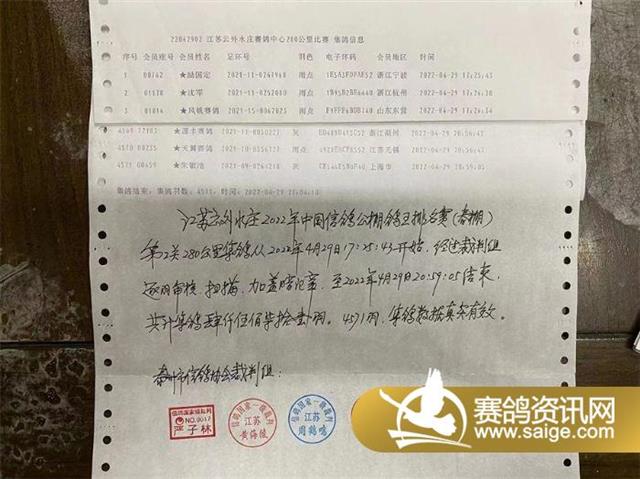 22042902 江苏云外水庄赛鸽中心280公里比赛 集鸽信息
序号 会员座号 会员姓名 足环号 羽色 电子环码 会员地区 时间
1 00162 ★励国定 2021-11-0261968 雨点 浙江宁波 2022-04-29 17:25:43
2 01578 ★沈军 2021-11-0252080 雨点 浙江杭州 2022-04-29 17:26:30
3 01014 ★风帆赛鸽 2021-15-0062025 雨点 山东东营 2022-04-29
4569 灰 浙江湖州 2022-04-29 20:56:47
4570 00235 ★天翼赛鸽 雨点 江苏无锡 2022-04-29 20:56:47
4571 00459 ★朱敏浩 灰 上海市 2022-04-29 20:59:05
集鸽结束, 集鸽羽数: 4571, 时间: 2022-04-29
江苏云外水庄2022年中国信鸽公棚鸽王排名赛(春棚)
第2关280公里集鸽从2022年4月29日17:25:43开始,经过裁判组
逐羽审核、扫描、加盖暗记章,至2022年4月29日20:59:05结束,
共计集鸽肆仟伍佰柒拾壹羽。4571羽,集鸽数据真实有效。
泰州市信鸽协会裁判组:
信鸽国家级裁判
NO.0017
严子林
信鸽国家一级裁判
江苏
黄海陵
信鸽国家一级裁判
江苏
周鹤鸣
赛鸽资讯网
www.saige.com